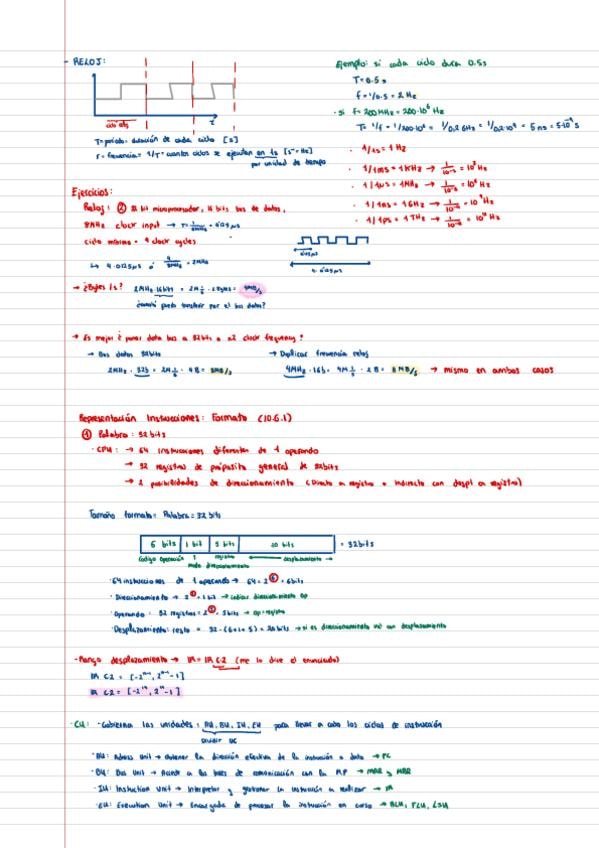 - RELOJ:
ciclo reloj
t
T = período: duración de cada ciclo [s]
F = frecuencia = 1/T = cuantos ciclos se ejecutan en 1s [s⁻¹ = Hz]
por unidad de tiempo
Ejemplo: si cada ciclo dura 0.5s
T = 0.5 s
f = 1/0.5 = 2 Hz
· si f = 200 MHz = 200·10⁶ Hz
T = 1/f = 1/200·10⁶ = 1/0,2 GHz = 1/0,2·10⁹ = 5 ns = 5·10⁻⁹ s
· 1/1s = 1 Hz
· 1/1ms = 1 KHz → 1/10⁻³ = 10³ Hz
· 1/1μs = 1 MHz → 1/10⁻⁶ = 10⁶ Hz
· 1/1ns = 1 GHz → 1/10⁻⁹ = 10⁹ Hz
· 1/1ps = 1 THz → 1/10⁻¹² = 10¹² Hz
Ejercicios:
Reloj: ② 32 bit microprocesador, 16 bits bus de datos,
8MHz clock input → T = 1/8MHz = 0,125 μs
ciclo mínimo = 4 clock cycles
↳ 4 · 0,125 μs ó 4/8MHz = 2MHz
0,125 μs
4 · 0,125 μs
→ ¿Bytes/s? 2MHz · 16 bits = 2M 1/s · 2 Bytes = 4MB/s
¿cuánto puedo transferir por el bus datos?
→ Es mejor ¿ poner data bus a 32 bits o x2 clock frequency?
→ Bus datos 32 bits
2MHz · 32b = 2M 1/s · 4B = 8MB/s
→ Duplicar frecuencia reloj
4MHz · 16b = 4M 1/s · 2B = 8MB/s → mismo en ambos casos
Representación Instrucciones: Formato (10.6.1)
① Palabra: 32 bits
· CPU: → 64 instrucciones diferentes de 1 operando
→ 32 registros de propósito general de 32 bits
→ 2 posibilidades de direccionamiento (Directo a registro o Indirecto con despl en registro)
Tamaño formato: Palabra = 32 bits
6 bits 1 bit 5 bits 20 bits = 32 bits
Código operación registro desplazamiento
modo direccionamiento
· 64 instrucciones de 1 operando → 64 = 2⁶ = 6 bits
· Direccionamiento → 2¹ = 1 bit → indicar direccionamiento op
· Operando: 32 registros = 2⁵ = 5 bits → op = registro
· Desplazamiento: resto = 32 - (6+1+5) = 20 bits → si es direccionamiento ind con desplazamiento
- Rango desplazamiento → IR = IR C-2 (me lo dice el enunciado)
IR C2 = [-2ⁿ⁻¹, 2ⁿ⁻¹ - 1]
IR C2 = [-2¹⁹, 2¹⁹ - 1]
- CU: - Gobierna las unidades: AU, BU, IU, EU para llevar a cabo los ciclos de instrucción
dividir UC
· AU: Adress Unit → obtener la dirección efectiva de la instrucción o dato → PC
· BU: Bus Unit → Accede a los buses de comunicación con la MP → MAR y MBR
· IU: Instruction Unit → Interpretar y gestionar la instrucción a realizar → IR
· EU: Execution Unit → Encargada de procesar la instrucción en curso → ALU, FLU, LSU